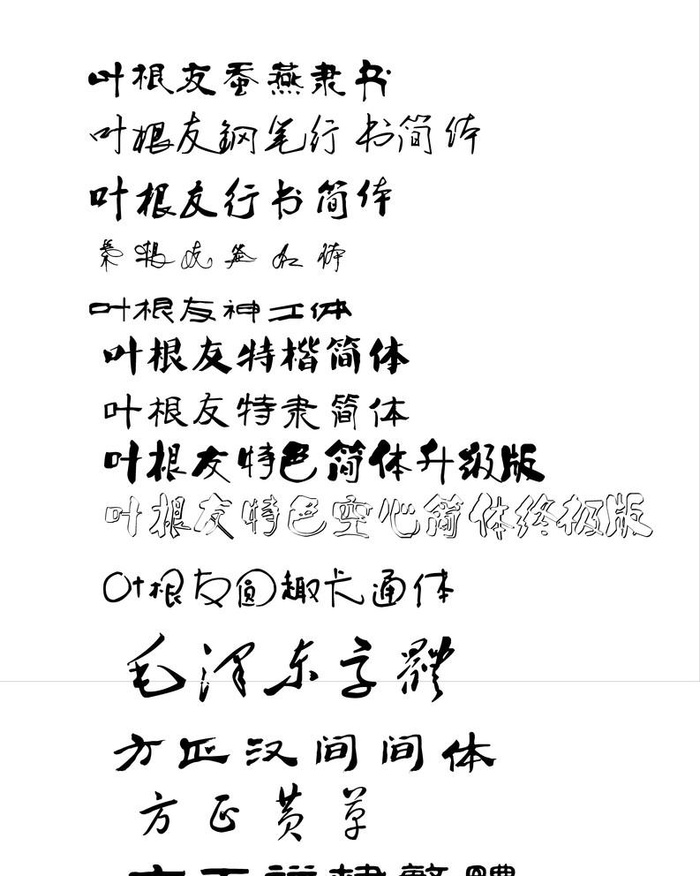 叶根友蚕燕隶书
叶根友钢笔行书简体
叶根友行书简体
根友签名体
叶根友神工体
叶根友特楷简体
叶根友特隶简体
叶根友特色简体升级版
叶根友特色空心简体终极版
叶根友圆趣卡通体
毛泽东字體
方正汉间间体
方正黄草